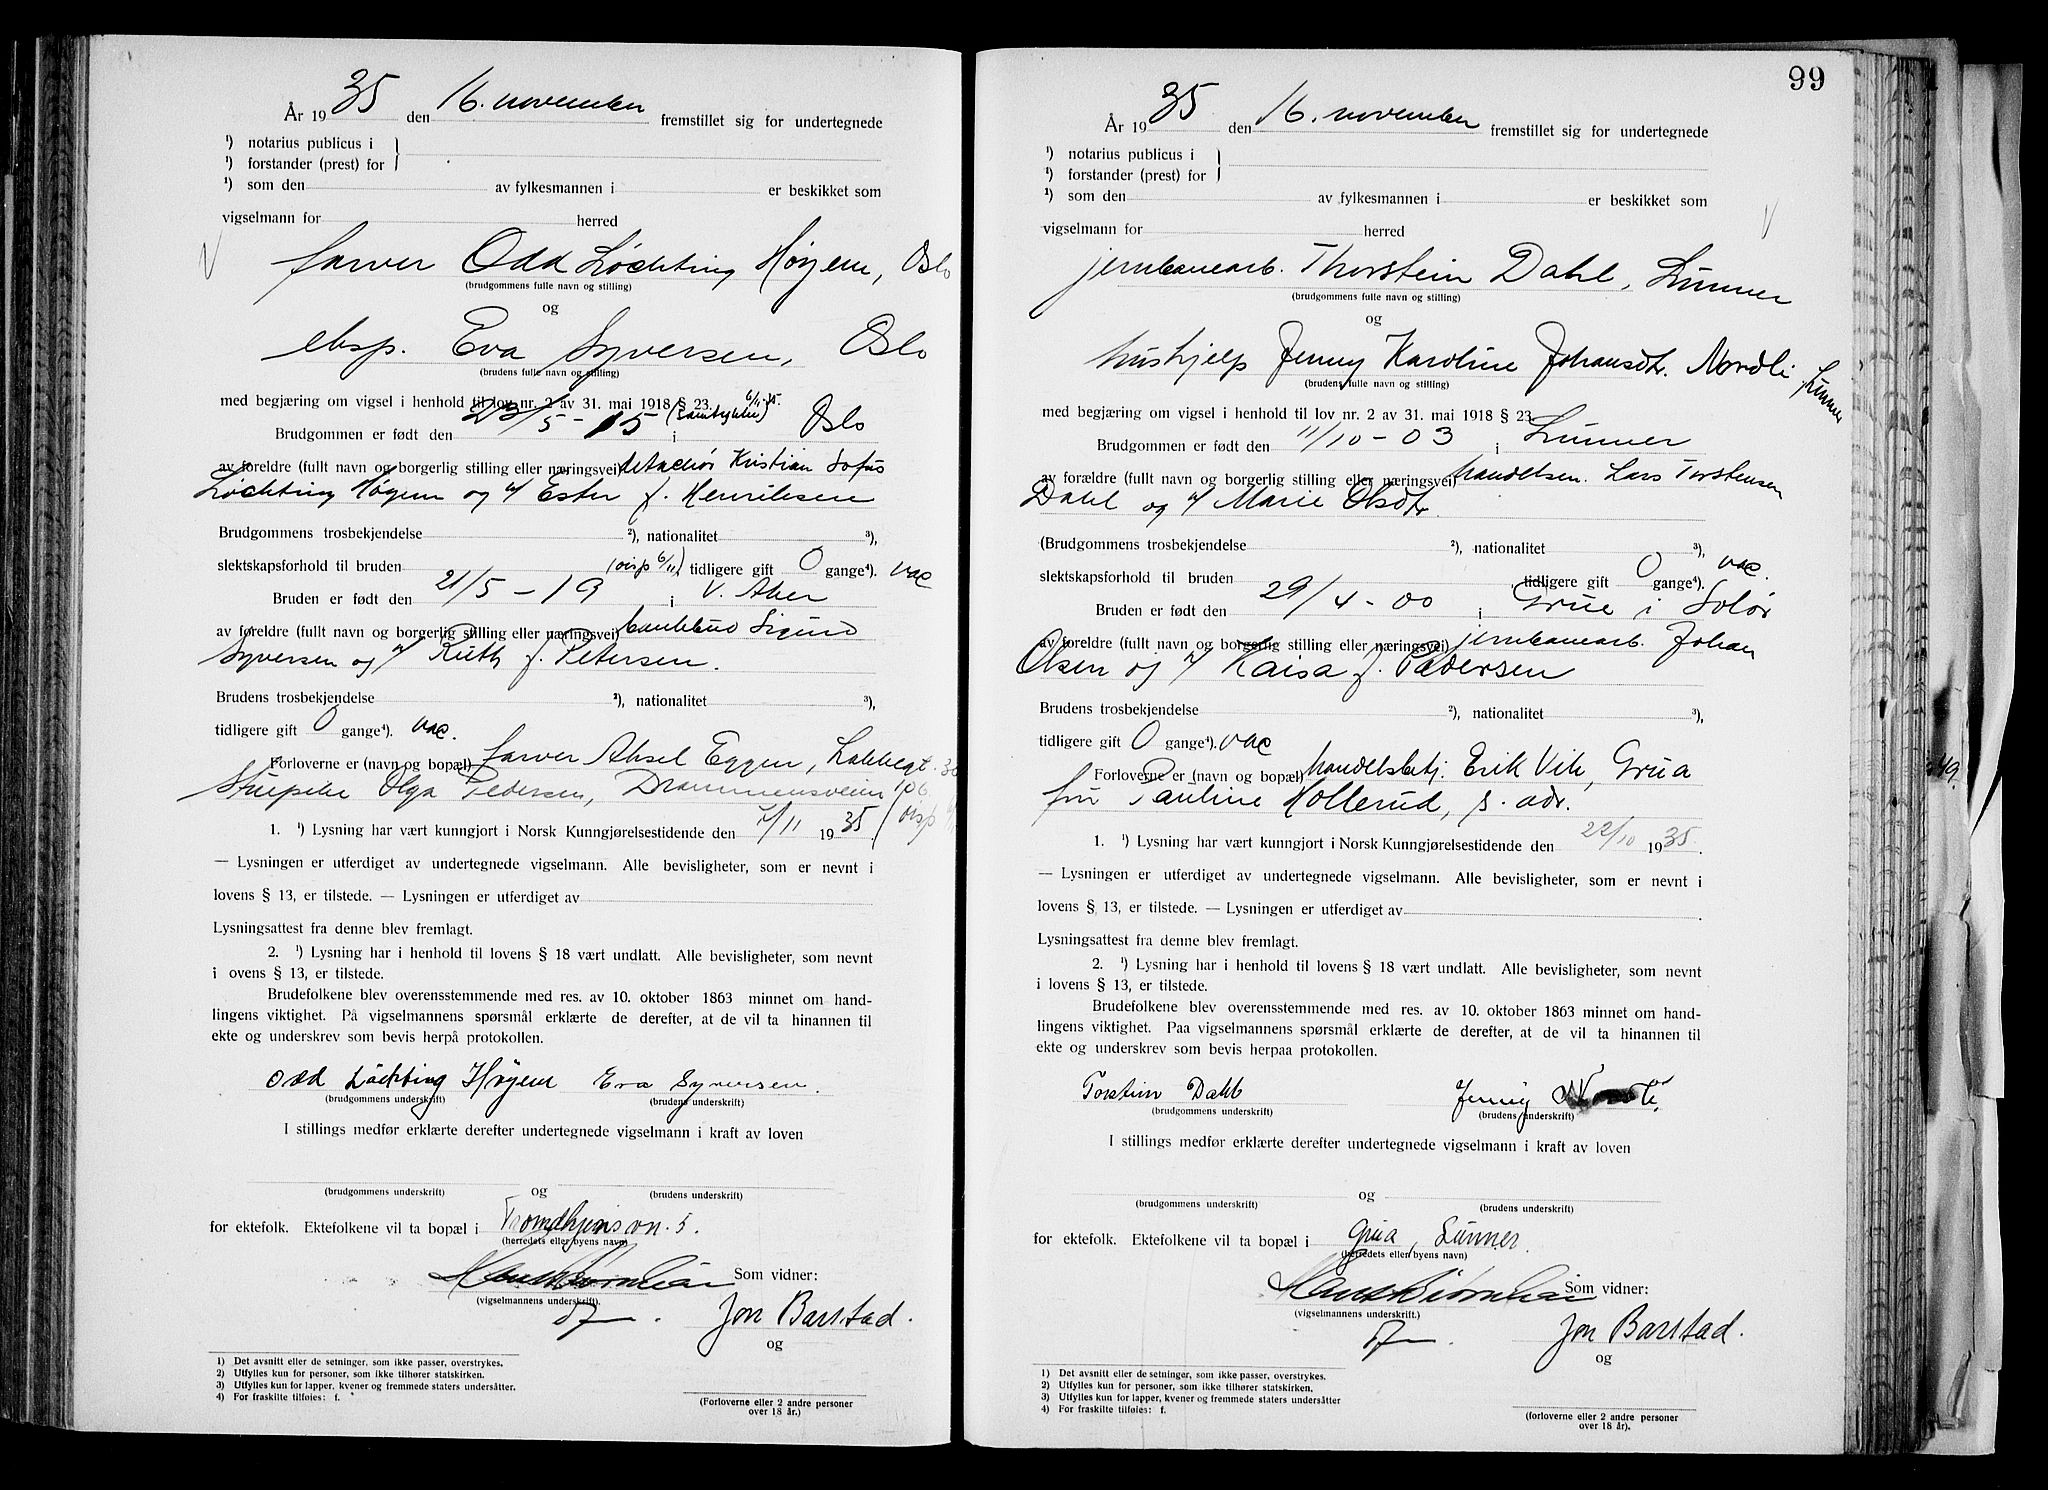 År 1935 den 16. november fremstillet sig for undertegnede
¹) notarius publicus i
¹) forstander (prest) for
¹) som den av fylkesmannen i er beskikket som
vigselmann for herred
farver Odd Löchting Høyem, Oslo
(brudgommens fulle navn og stilling)
og
eksp. Eva Syversen, Oslo
(brudens fulle navn og stilling)
med begjæring om vigsel i henhold til lov nr. 2 av 31. mai 1918 § 23. 6/11-35.
Brudgommen er født den 23/5-15 (samtykke) i Oslo
av foreldre (fullt navn og borgerlig stilling eller næringsvei) Kristian Sofus
Löchting Høyem og h/ Ester f. Henriksen
Brudgommens trosbekjendelse ²), nationalitet ³),
slektskapsforhold til bruden (disp 6/11) tidligere gift 0 gange⁴). vac
Bruden er født den 21/5-19 i V. Aker
av foreldre (fullt navn og borgerlig stilling eller næringsvei) Sigurd
Syversen og h/ Ruth f. Petersen.
Brudens trosbekjendelse ²), nationalitet ³),
tidligere gift 0 gange⁴). vac.
Forloverne er (navn og bopæl) farver Aksel Eggen, Lakkegt. 30
Stuepike Olga Pedersen, Drammensveien 106.
1. ¹) Lysning har vært kunngjort i Norsk Kunngjørelsestidende den 7/11 1935. (disp
— Lysningen er utferdiget av undertegnede vigselmann. Alle bevisligheter, som er nevnt i
lovens § 13, er tilstede. — Lysningen er utferdiget av
Lysningsattest fra denne blev fremlagt.
2. ¹) Lysning har i henhold til lovens § 18 vært undlatt. Alle bevisligheter, som nevnt
i ovens § 13, er tilstede.
Brudefolkene blev overensstemmende med res. av 10. oktober 1863 minnet om hand-
lingens viktighet. På vigselmannens spørsmål erklærte de derefter, at de vil ta hinannen til
ekte og underskrev som bevis herpå protokollen.
Odd Löchting Høyem Eva Syversen.
(brudgommens underskrift) (brudens underskrift)
I stillings medfør erklærte derefter undertegnede vigselmann i kraft av loven
og
(brudgommens underskrift) (brudens underskrift)
for ektefolk. Ektefolkene vil ta bopæl i Trondhjemsvn. 5.
(herredets eller byens navn)
Som vidner:
(vigselmannens underskrift).
Jon Barstad.
og
1) Det avsnitt eller de setninger, som ikke passer, overstrykes.
2) Utfylles kun for personer, som ikke tilhører statskirken.
3) Utfylles kun for lapper, kvener og fremmede staters undersåtter.
4) For fraskilte tilføies: f.
(Forloverne eller 2 andre personer
over 18 år.)
99
År 1935 den 16. november fremstillet sig for undertegnede
¹) notarius publicus i
¹) forstander (prest) for
¹) som den av fylkesmannen i er beskikket som
vigselmann for herred
jernbanearb. Thorstein Dahl, Lunner
(brudgommens fulle navn og stilling)
og
hushjelp Jenny Karoline Johansdtr. Nordli, Lunner
(brudens fulle navn og stilling)
med begjæring om vigsel i henhold til lov nr. 2 av 31. mai 1918 § 23
Brudgommen er født den 11/10-03 i Lunner
av forældre (fullt navn og borgerlig stilling eller næringsvei) handelsm. Lars Torstensen
Dahl og h/ Marie Olsdtr.
(Brudgommens trosbekjendelse ²), nationalitet ³),
slektskapsforhold til bruden , tidligere gift 0 gange⁴). vac.
Bruden er født den 29/4-00 i Grue i Solør
av foreldre (fullt navn og borgerlig stilling eller næringsvei) jernbanearb. Johan
Olsen og h/ Kaisa f. Pedersen
Brudens trosbekjendelse ²), nationalitet ³),
tidligere gift 0 gange⁴). vac
Forloverne er (navn og bopæl) handelsbetj. Erik Vik, Grua
fru Pauline Hollerud, s. adr.
1. ¹) Lysning har vært kunngjort i Norsk Kunngjørelsestidende den 22/10 1935.
— Lysningen er utferdiget av undertegnede vigselmann. Alle bevisligheter, som er nevnt i
lovens § 13, er tilstede. — Lysningen er utferdiget av
Lysningsattest fra denne blev fremlagt.
2. ¹) Lysning har i henhold til lovens § 18 vært undlatt. Alle bevisligheter, som nevnt
i lovens § 13, er tilstede.
Brudefolkene blev overensstemmende med res. av 10. oktober 1863 minnet om hand-
lingens viktighet. Paa vigselmannens spørsmål erklærte de derefter, at de vil ta hinannen til
ekte og underskrev som bevis herpaa protokollen.
Torstein Dahl Jenny Nordli.
(brudgommens underskrift) (brudens underskrift)
I stillings medfør erklærte derefter undertegnede vigselmann i kraft av loven
og
(brudgommens underskrift) (brudens underskrift)
for ektefolk. Ektefolkene vil ta bopæl i Grua, Lunner.
(herredets eller byens navn)
Som vidner:
(vigselmannens underskrift.)
Jon Barstad.
og
1) Det avsnitt eller de setninger, som ikke passer, overstrykes.
2) Utfylles kun for personer, som ikke tilhører statskirken.
3) Utfylles kun for lapper, kvener og fremmede staters undersåtter
4) For fraskilte tilføies: f.
(forloverne eller 2 andre personer
over 18 år).